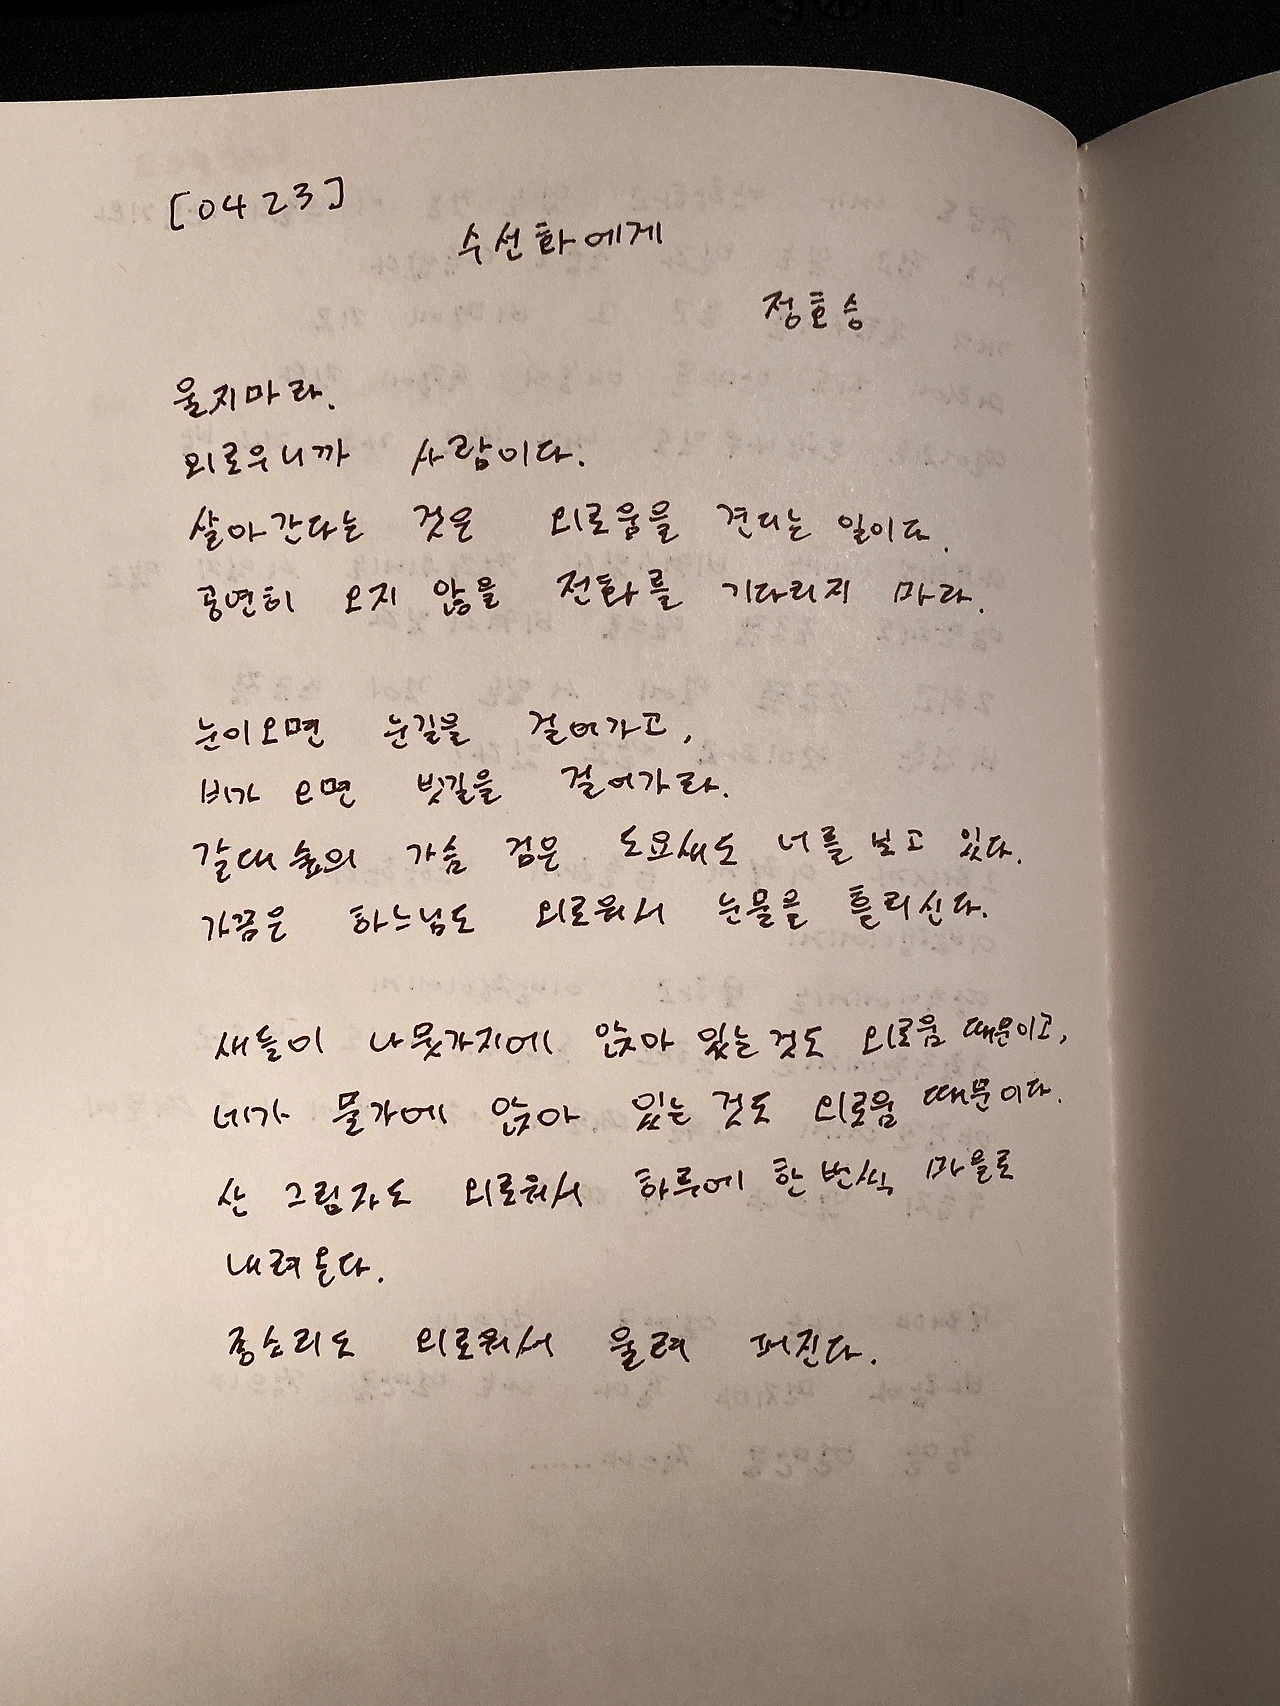 [0423]
수선화에게
정호승
울지마라.
외로우니까 사람이다.
살아간다는 것은 외로움을 견디는 일이다.
공연히 오지 않을 전화를 기다리지 마라.
눈이오면 눈길을 걸어가고,
비가 오면 빗길을 걸어가라.
갈대숲의 가슴 검은 도요새도 너를 보고 있다.
가끔은 하느님도 외로워서 눈물을 흘리신다.
새들이 나뭇가지에 앉아 있는 것도 외로움 때문이고,
네가 물가에 앉아 있는 것도 외로움 때문이다.
산 그림자도 외로워서 하루에 한 번씩 마을로
내려온다.
종소리도 외로워서 울려 퍼진다.